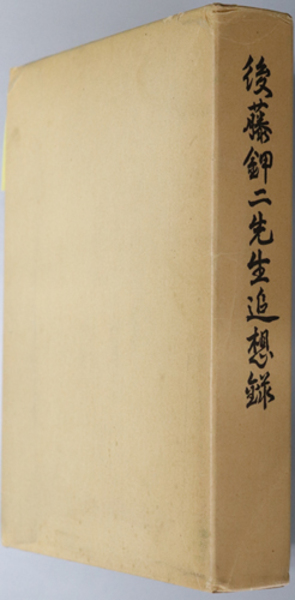 後藤鉀二先生追想録